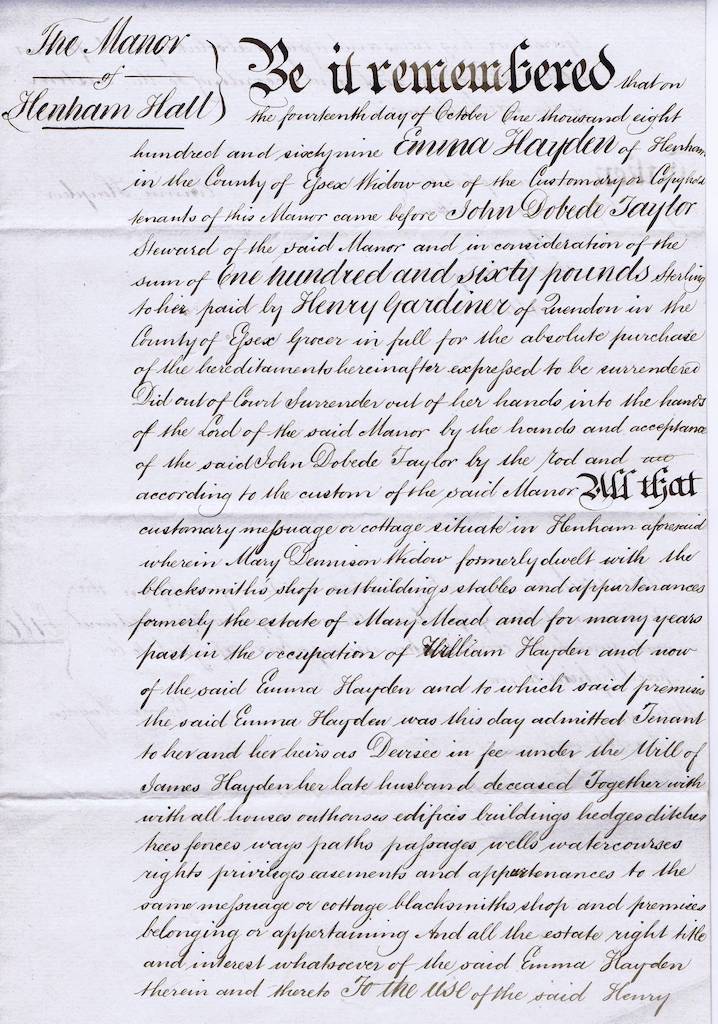 The Manor
of
Henham Hall
Be it remembered that on
the fourteenth day of October One thousand eight
hundred and sixty nine Emma Hayden of Henham
in the County of Essex Widow one of the Customary or Copyhold
tenants of this Manor came before John Dobede Taylor
Steward of the said Manor and in consideration of the
sum of One hundred and sixty pounds Sterling
to her paid by Henry Gardiner of Quendon in the
County of Essex Grocer in full for the absolute purchase
of the hereditaments hereinafter expressed to be surrendered
Did out of Court Surrender out of her hands into the hands
of the Lord of the said Manor by the hands and acceptance
of the said John Dobede Taylor by the rod and
according to the custom of the said Manor All that
customary messuage or cottage situate in Henham aforesaid
wherein Mary Dennison Widow formerly dwelt with the
blacksmiths shop outbuildings stables and appurtenances
formerly the estate of Mary Mead and for many years
past in the occupation of William Hayden and now
of the said Emma Hayden and to which said premises
the said Emma Hayden was this day admitted Tenant
to her and her heirs as Devisee in fee under the Will of
James Hayden her late husband deceased Together with
with all houses outhouses edifices buildings hedges ditches
trees fences ways paths passages wells watercourses
rights privileges easements and appurtenances to the
same messuage or cottage blacksmiths shop and premises
belonging or appertaining And all the estate right title
and interest whatsoever of the said Emma Hayden
therein and thereto To the use of the said Henry